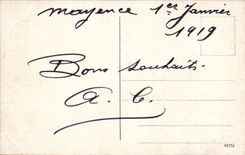 Mayence 1er Janvier
1919
Bons souhaits.
A. C.